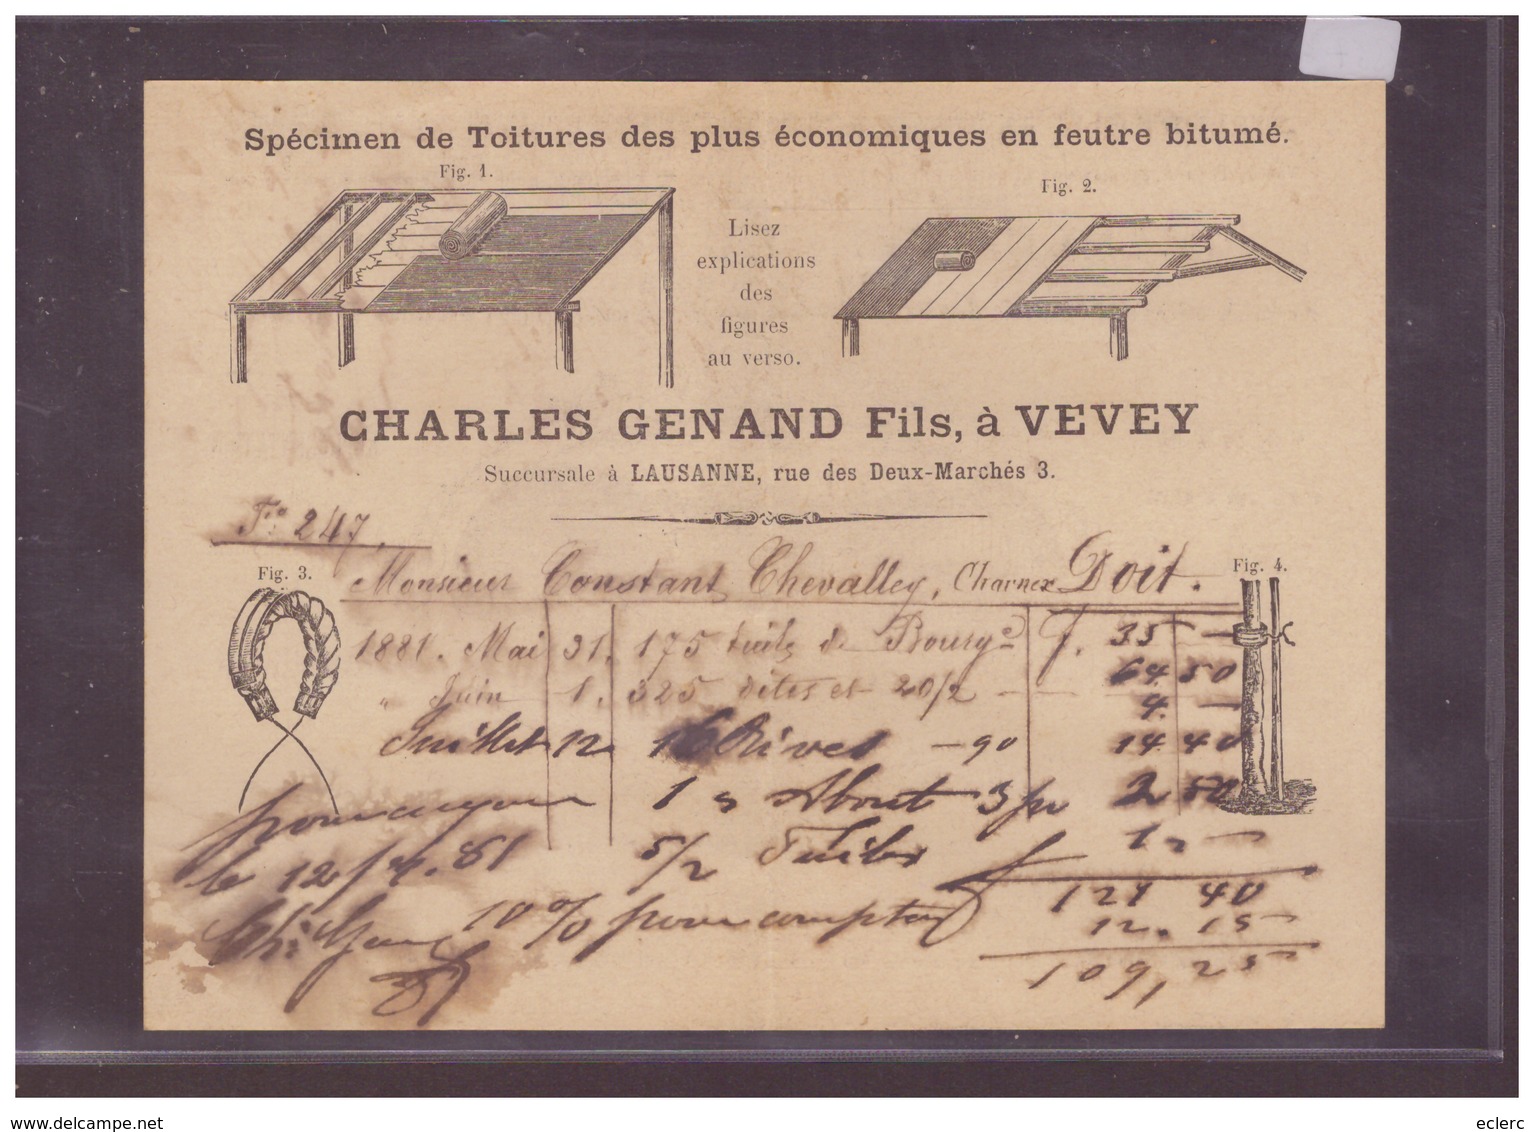 Spécimen de Toitures des plus économiques en feutre bitumé.
Fig. 1.
Fig. 2.
Lisez
explications
des
figures
au verso.
CHARLES GENAND Fils, à VEVEY
Succursale à LAUSANNE, rue des Deux-Marchés 3.
Fo 247.
Fig. 3.
Fig. 4.
Monsieur Constant Chevalley, Charnex Doit.
1881. Mai 31. 175 tuils de Bourge f. 35 —
" Juin 1. 325 dites et 20/2 — 64 50
4 —
Juillet 12 16 Rives — 90 14 40
1 s About 3 pr 2 50
5/2 Tuiles 1 —
127 40
10 % pour comptant 12. 15
109, 25
pour acquit
le 12/7. 81
Chs Genand
www.delcampe.net
eclerc